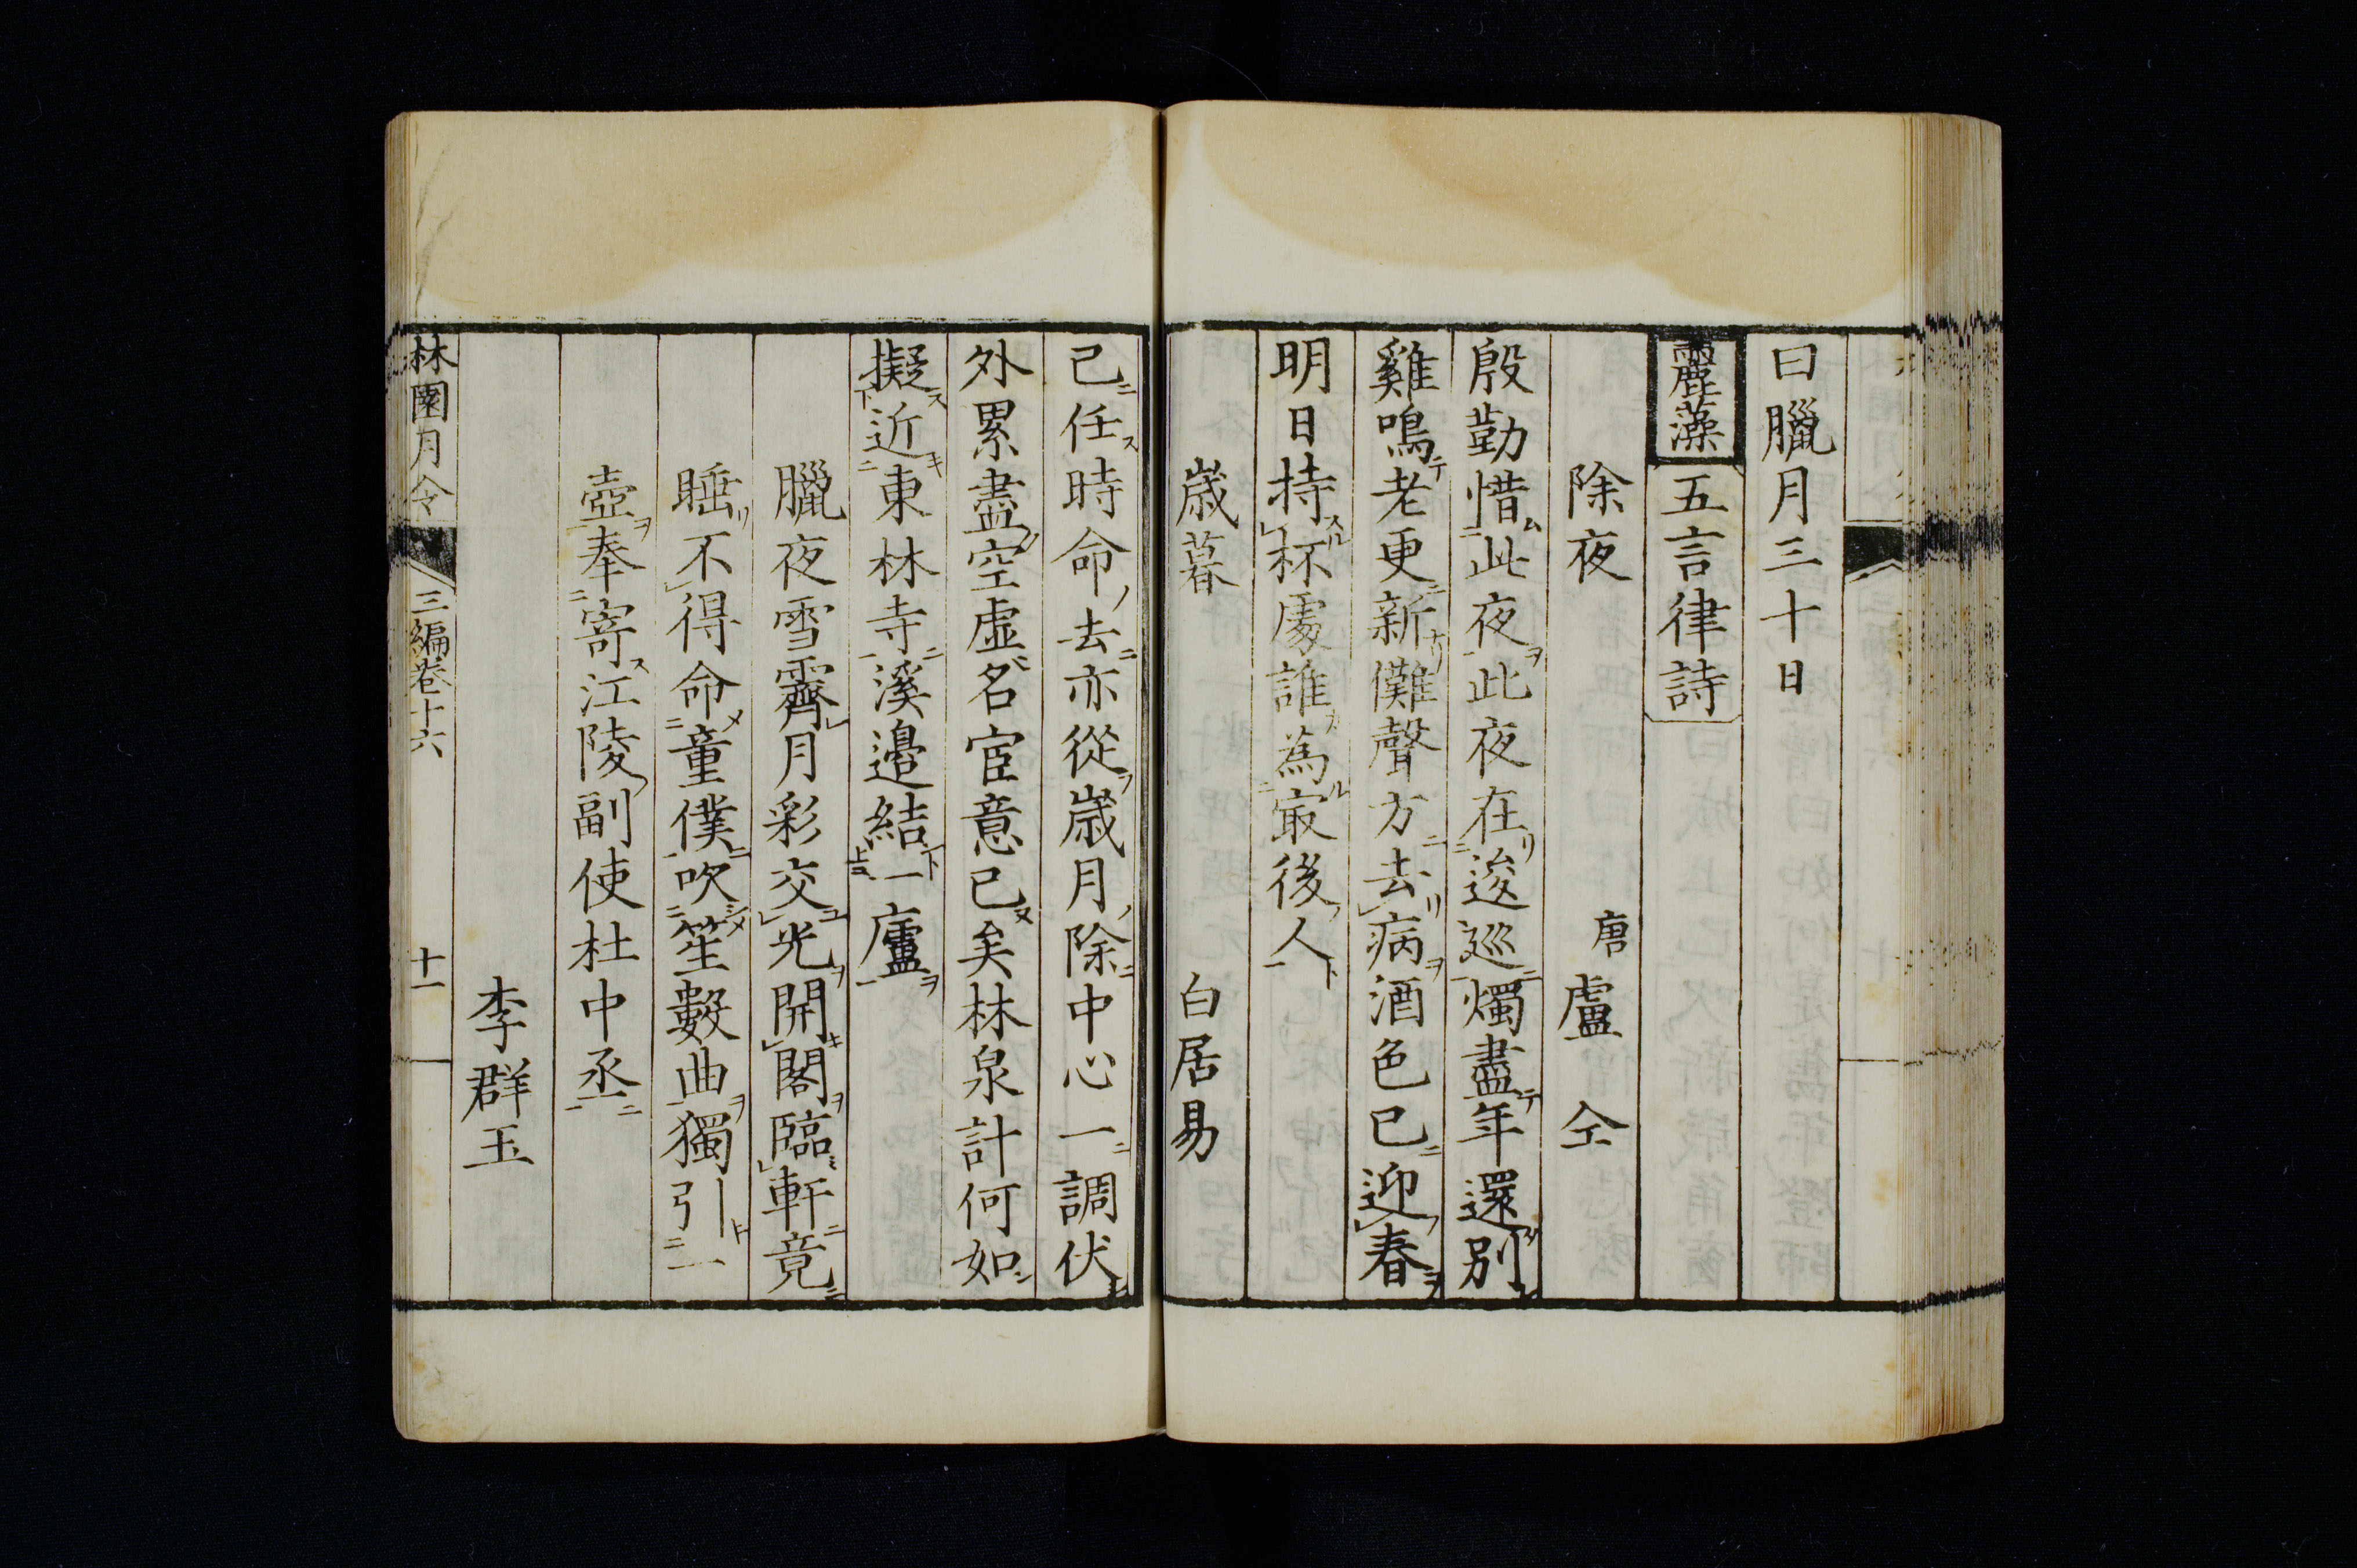 曰臘月三十日
麗藻 五言律詩
除夜 唐 盧 仝
殷勤惜此夜此夜在逡巡燭盡年還別
雞鳴老更新儺聲方去病酒色已迎春
明日持杯處誰為冣後人
歲暮 白居易
已任時命去亦從歲月除中心一調伏
外累盡空虛名宦意已矣林泉計何如
擬近東林寺溪邊結一廬
臘夜雪霽月彩交光開閣臨軒竟
睡不得命童僕吹笙數曲獨引一
壺奉寄江陵副使杜中丞
李群玉
林園月令 三編卷十六 十一